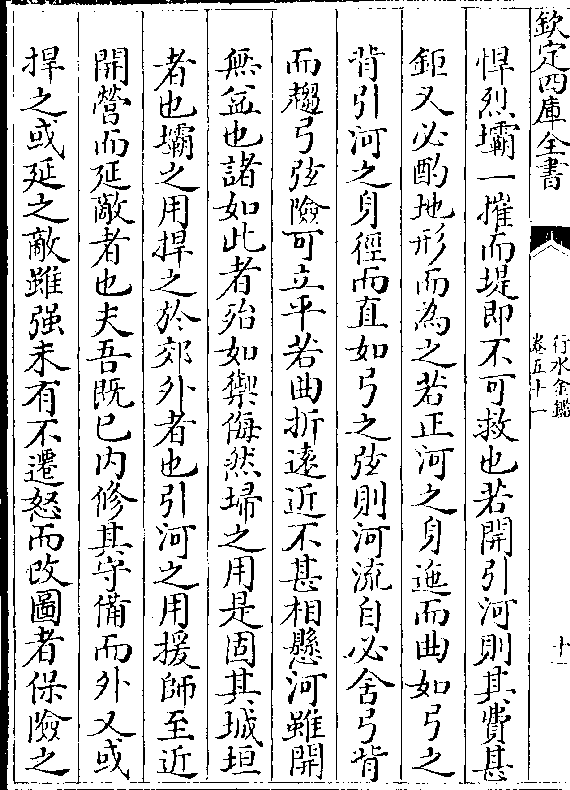 欽定四庫全書
行水金鑑
卷五十一
十一
悍烈壩一摧而堤即不可救也若開引河則其費甚
鉅又必酌地形而為之若正河之身迤而曲如弓之
背引河之身徑而直如弓之弦則河流自必舍弓背
而趨弓弦險可立平若曲折逺近不甚相懸河雖開
無益也諸如此者殆如禦侮然埽之用是固其城垣
者也壩之用捍之於郊外者也引河之用援師至近
開營而延敵者也夫吾既已内修其守備而外又或
捍之或延之敵雖强未有不遷怒而改圖者保險之